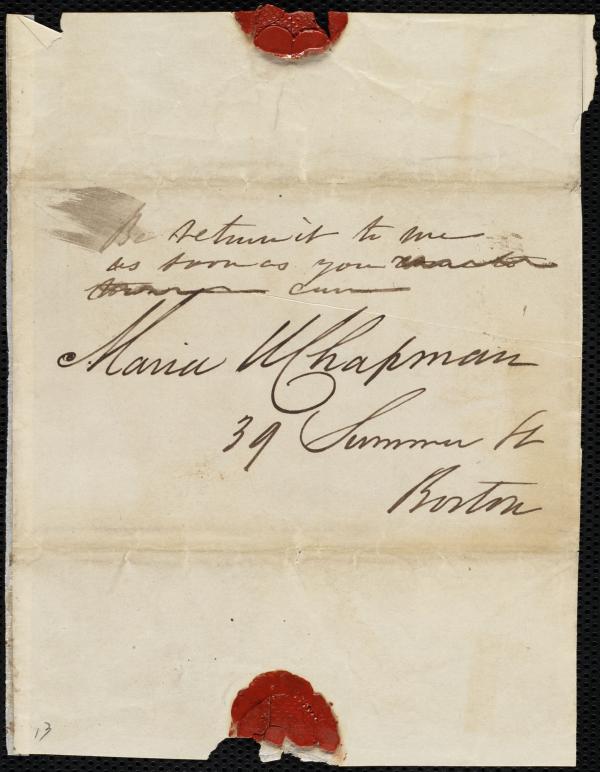 Be return it to me
as soon as you
can
Maria W Chapman
39 Summer St
Boston
13